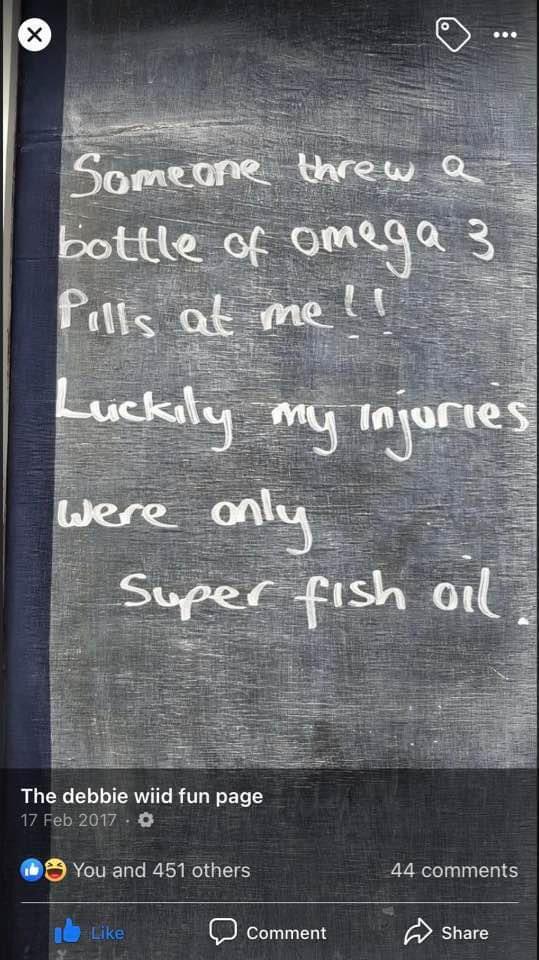 Someone threw a
bottle of omega 3
Pills at me!!
Luckily my injuries
were only
Super fish oil.
The debbie wiid fun page
17 Feb 2017 ·
You and 451 others
44 comments
Like
Comment
Share